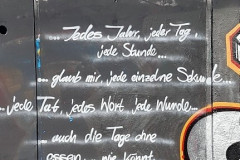 Jedes Jahr, jeder Tag,
jede Stunde...
...glaub mir, jede einzelne Sekunde...
...jede Tat, jedes Wort, jede Wunde...
...auch die Tage ohne
essen... wie könnt